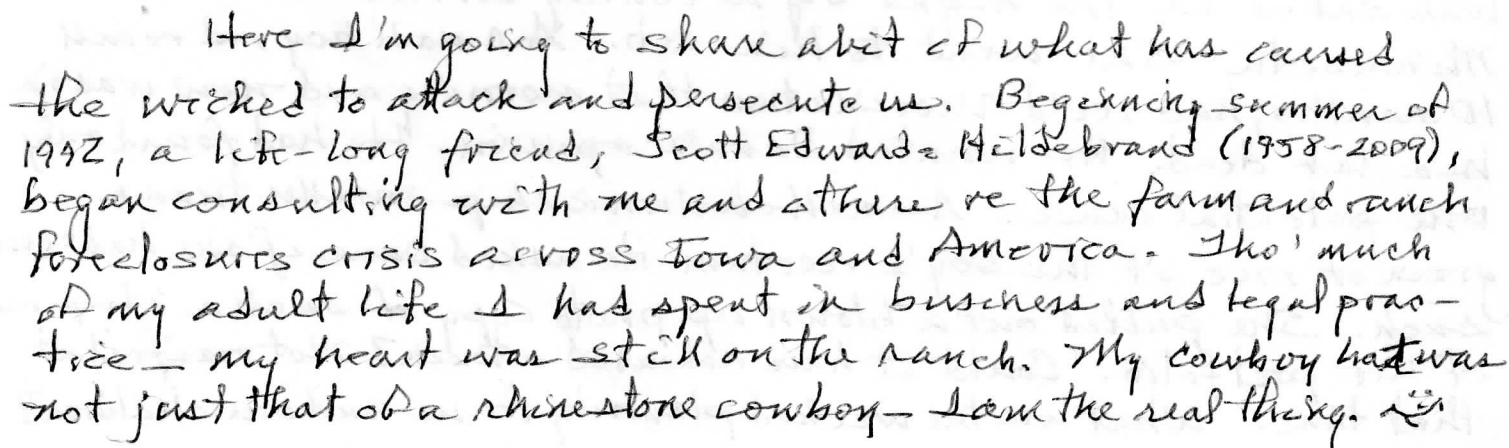 Here I'm going to share a bit of what has caused
the wicked to attack and persecute us. Beginning summer of
1992, a life-long friend, Scott Edwards Hildebrand (1958-2009),
began consulting with me and others re the farm and ranch
foreclosures crisis across Iowa and America. Tho' much
of my adult life I had spent in business and legal prac-
tice — my heart was still on the ranch. My cowboy hat was
not just that of a rhinestone cowboy — I am the real thing.